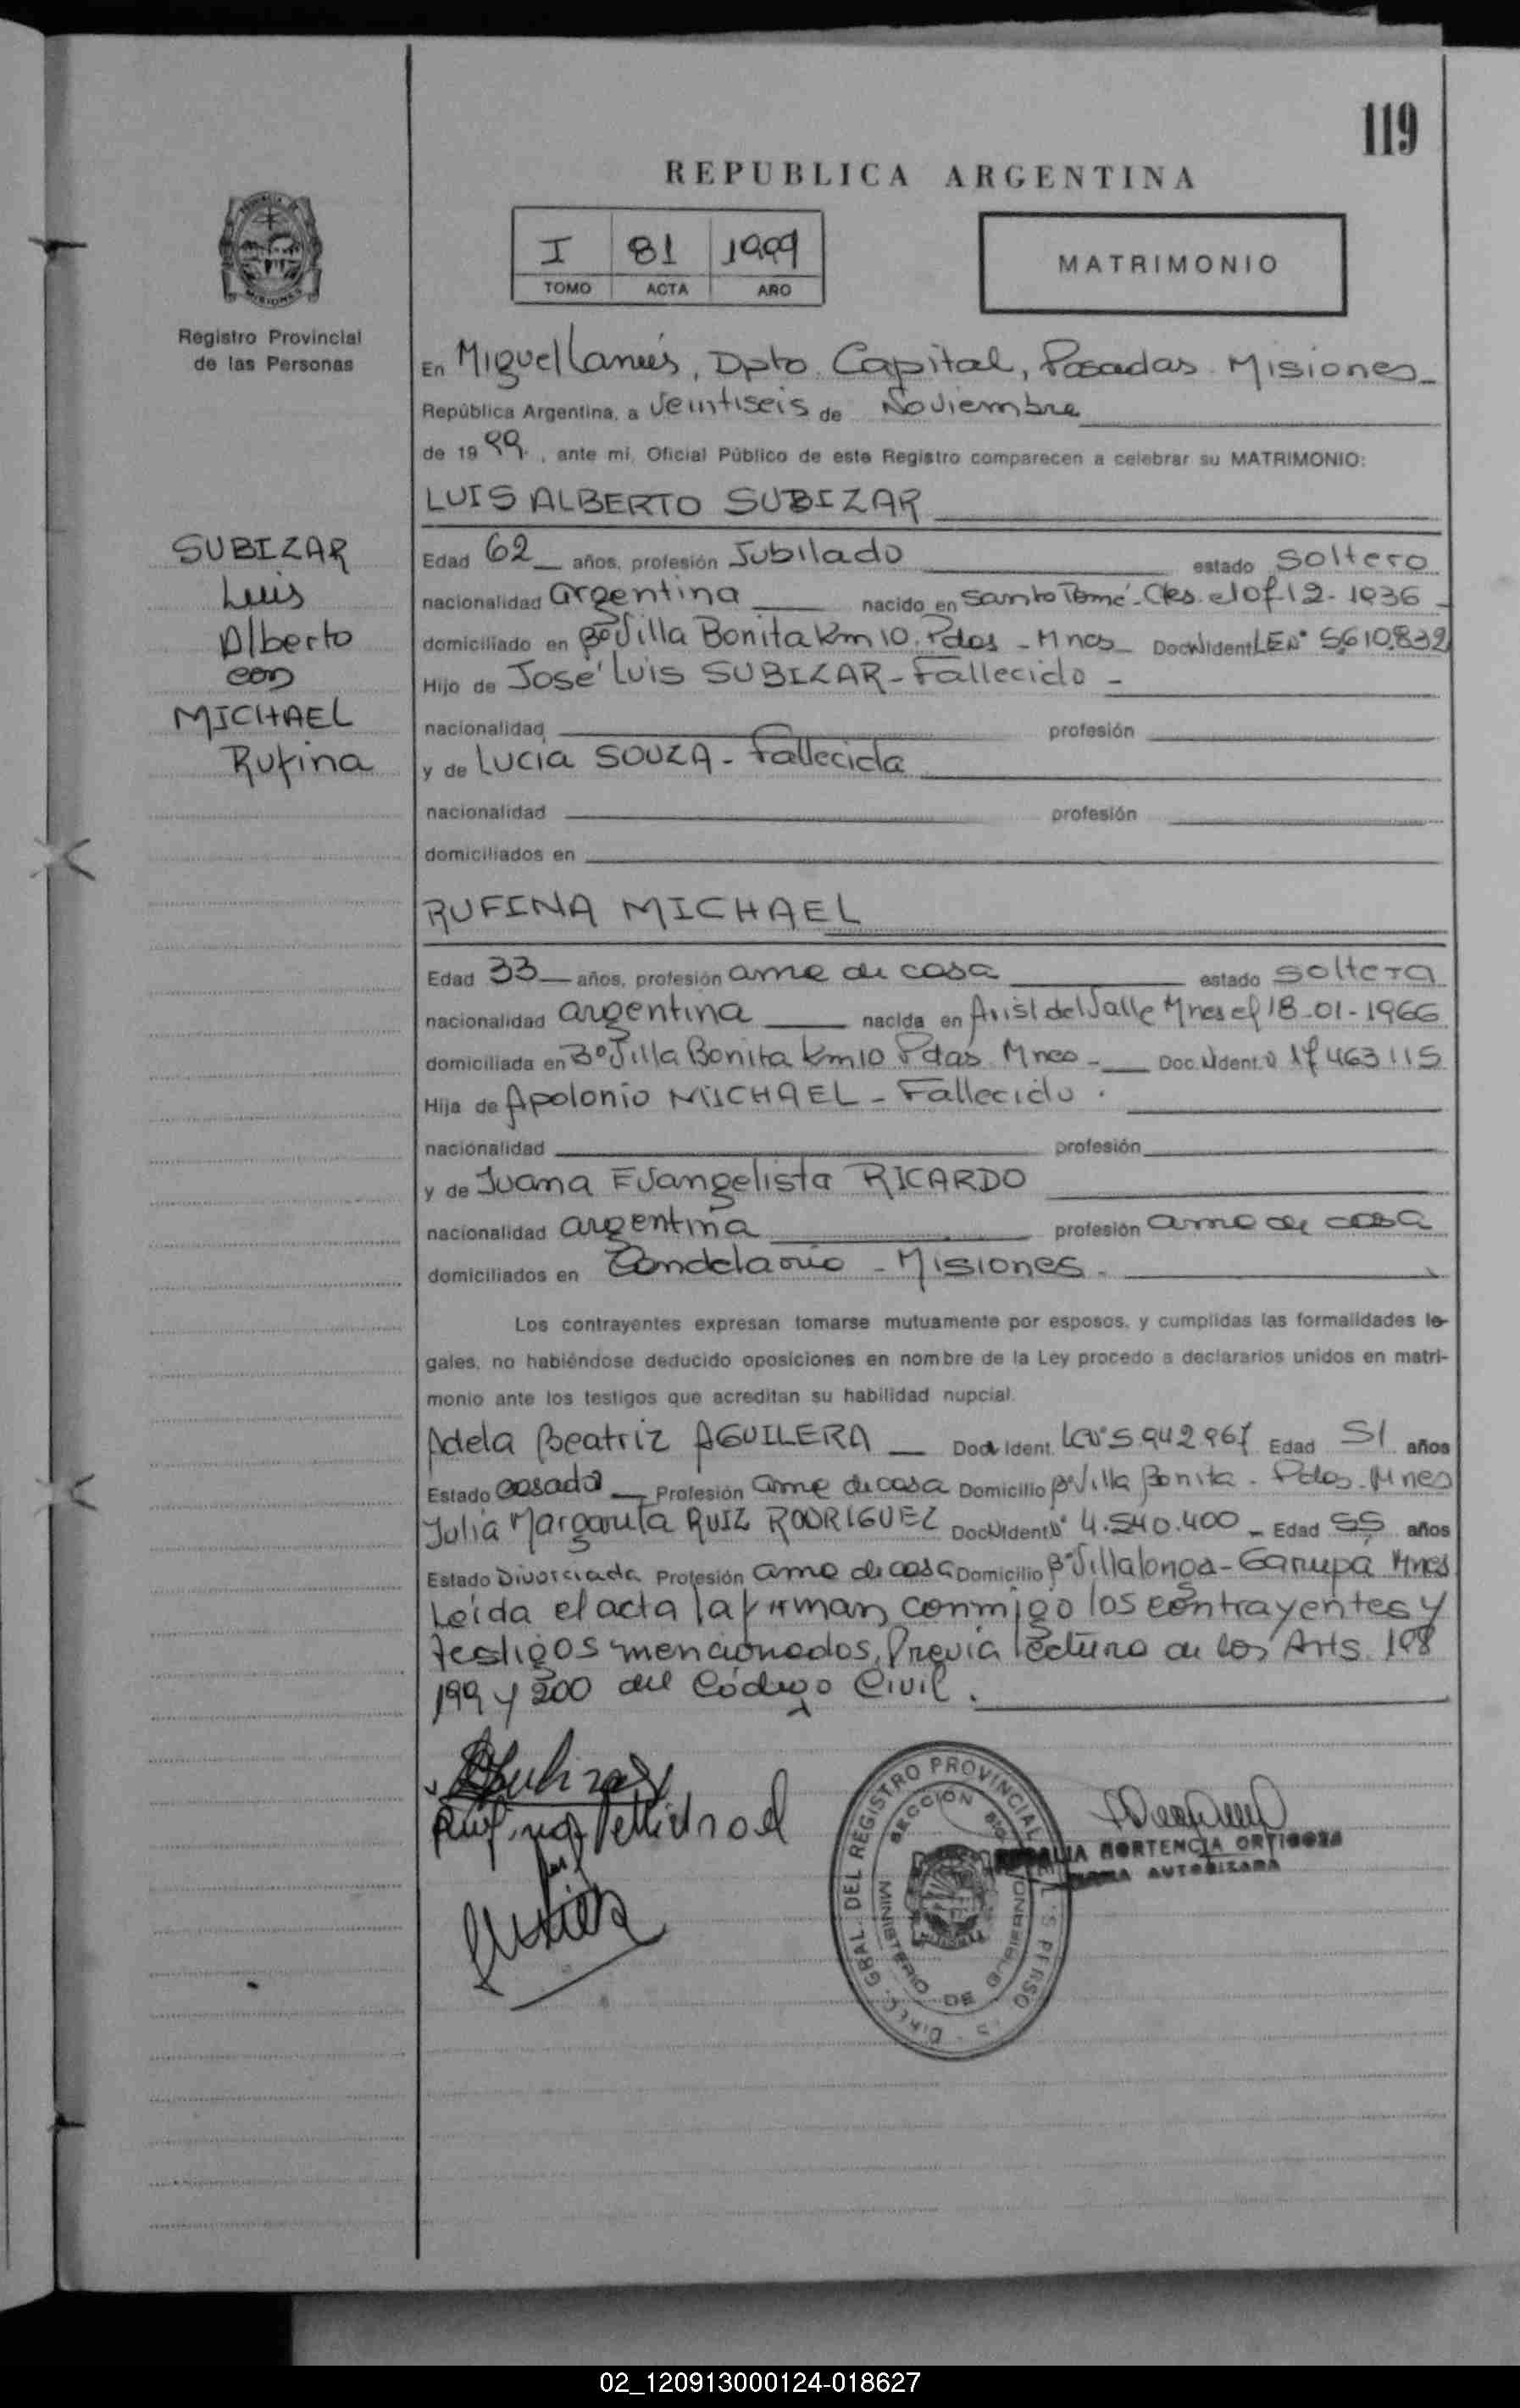 119
REPUBLICA ARGENTINA
I 81 1999
TOMO ACTA AÑO
MATRIMONIO
MISIONES
Registro Provincial
de las Personas
SUBIZAR
Luis
Alberto
con
MICHAEL
Rufina
En Miguel Lanús, Dpto. Capital, Posadas Misiones
República Argentina, a Veintiseis de Noviembre
de 1999, ante mi, Oficial Público de este Registro comparecen a celebrar su MATRIMONIO:
LUIS ALBERTO SUBIZAR
Edad 62 años, profesión Jubilado estado Soltero
nacionalidad argentina nacido en Santo Tomé - Ctes. el 07-12-1936
domiciliado en Bº Villa Bonita Km 10. Pdas - Mnes Doc. Nº Ident LE Nº 5.610.832
Hijo de José Luis SUBIZAR - Fallecido -
nacionalidad profesión
y de Lucia SOUZA - Fallecida
nacionalidad profesión
domiciliados en
RUFINA MICHAEL
Edad 33 años, profesión ama de casa estado Soltera
nacionalidad argentina nacida en Arist del Valle Mnes el 18-01-1966
domiciliada en Bº Villa Bonita Km 10 Pdas Mnes - Doc. Nident. 17 463 115
Hija de Apolonio MICHAEL - Fallecido.
nacionalidad profesión
y de Juana Evangelista RICARDO
nacionalidad argentina profesión ama de casa
domiciliados en Candelaria - Misiones.
Los contrayentes expresan tomarse mutuamente por esposos, y cumplidas las formalidades le-
gales, no habiéndose deducido oposiciones en nombre de la Ley procedo a declararlos unidos en matri-
monio ante los testigos que acreditan su habilidad nupcial.
Adela Beatriz AGUILERA Doc. Ident. LC Nº 5.942.967 Edad 51 años
Estado Casada Profesión ama de casa Domicilio Bº Villa Bonita - Pdas. Mnes
Julia Margarita RUIZ RODRIGUEZ Doc. Ident. Nº 4.540.400 - Edad 55 años
Estado Divorciada Profesión ama de casa Domicilio Bº Villalonga - Garupá Mnes
Leída el acta la firman conmigo los contrayentes y
testigos mencionados, Previa lectura de los Arts. 198
199 y 200 del Código Civil.
Subizar
Rufina Michael
DIREC. GRAL. DEL REGISTRO PROVINCIAL
SECCION
MINISTERIO DE
HORTENCIA ORTIGOZA
FIRMA AUTORIZADA
02_120913000124-018627